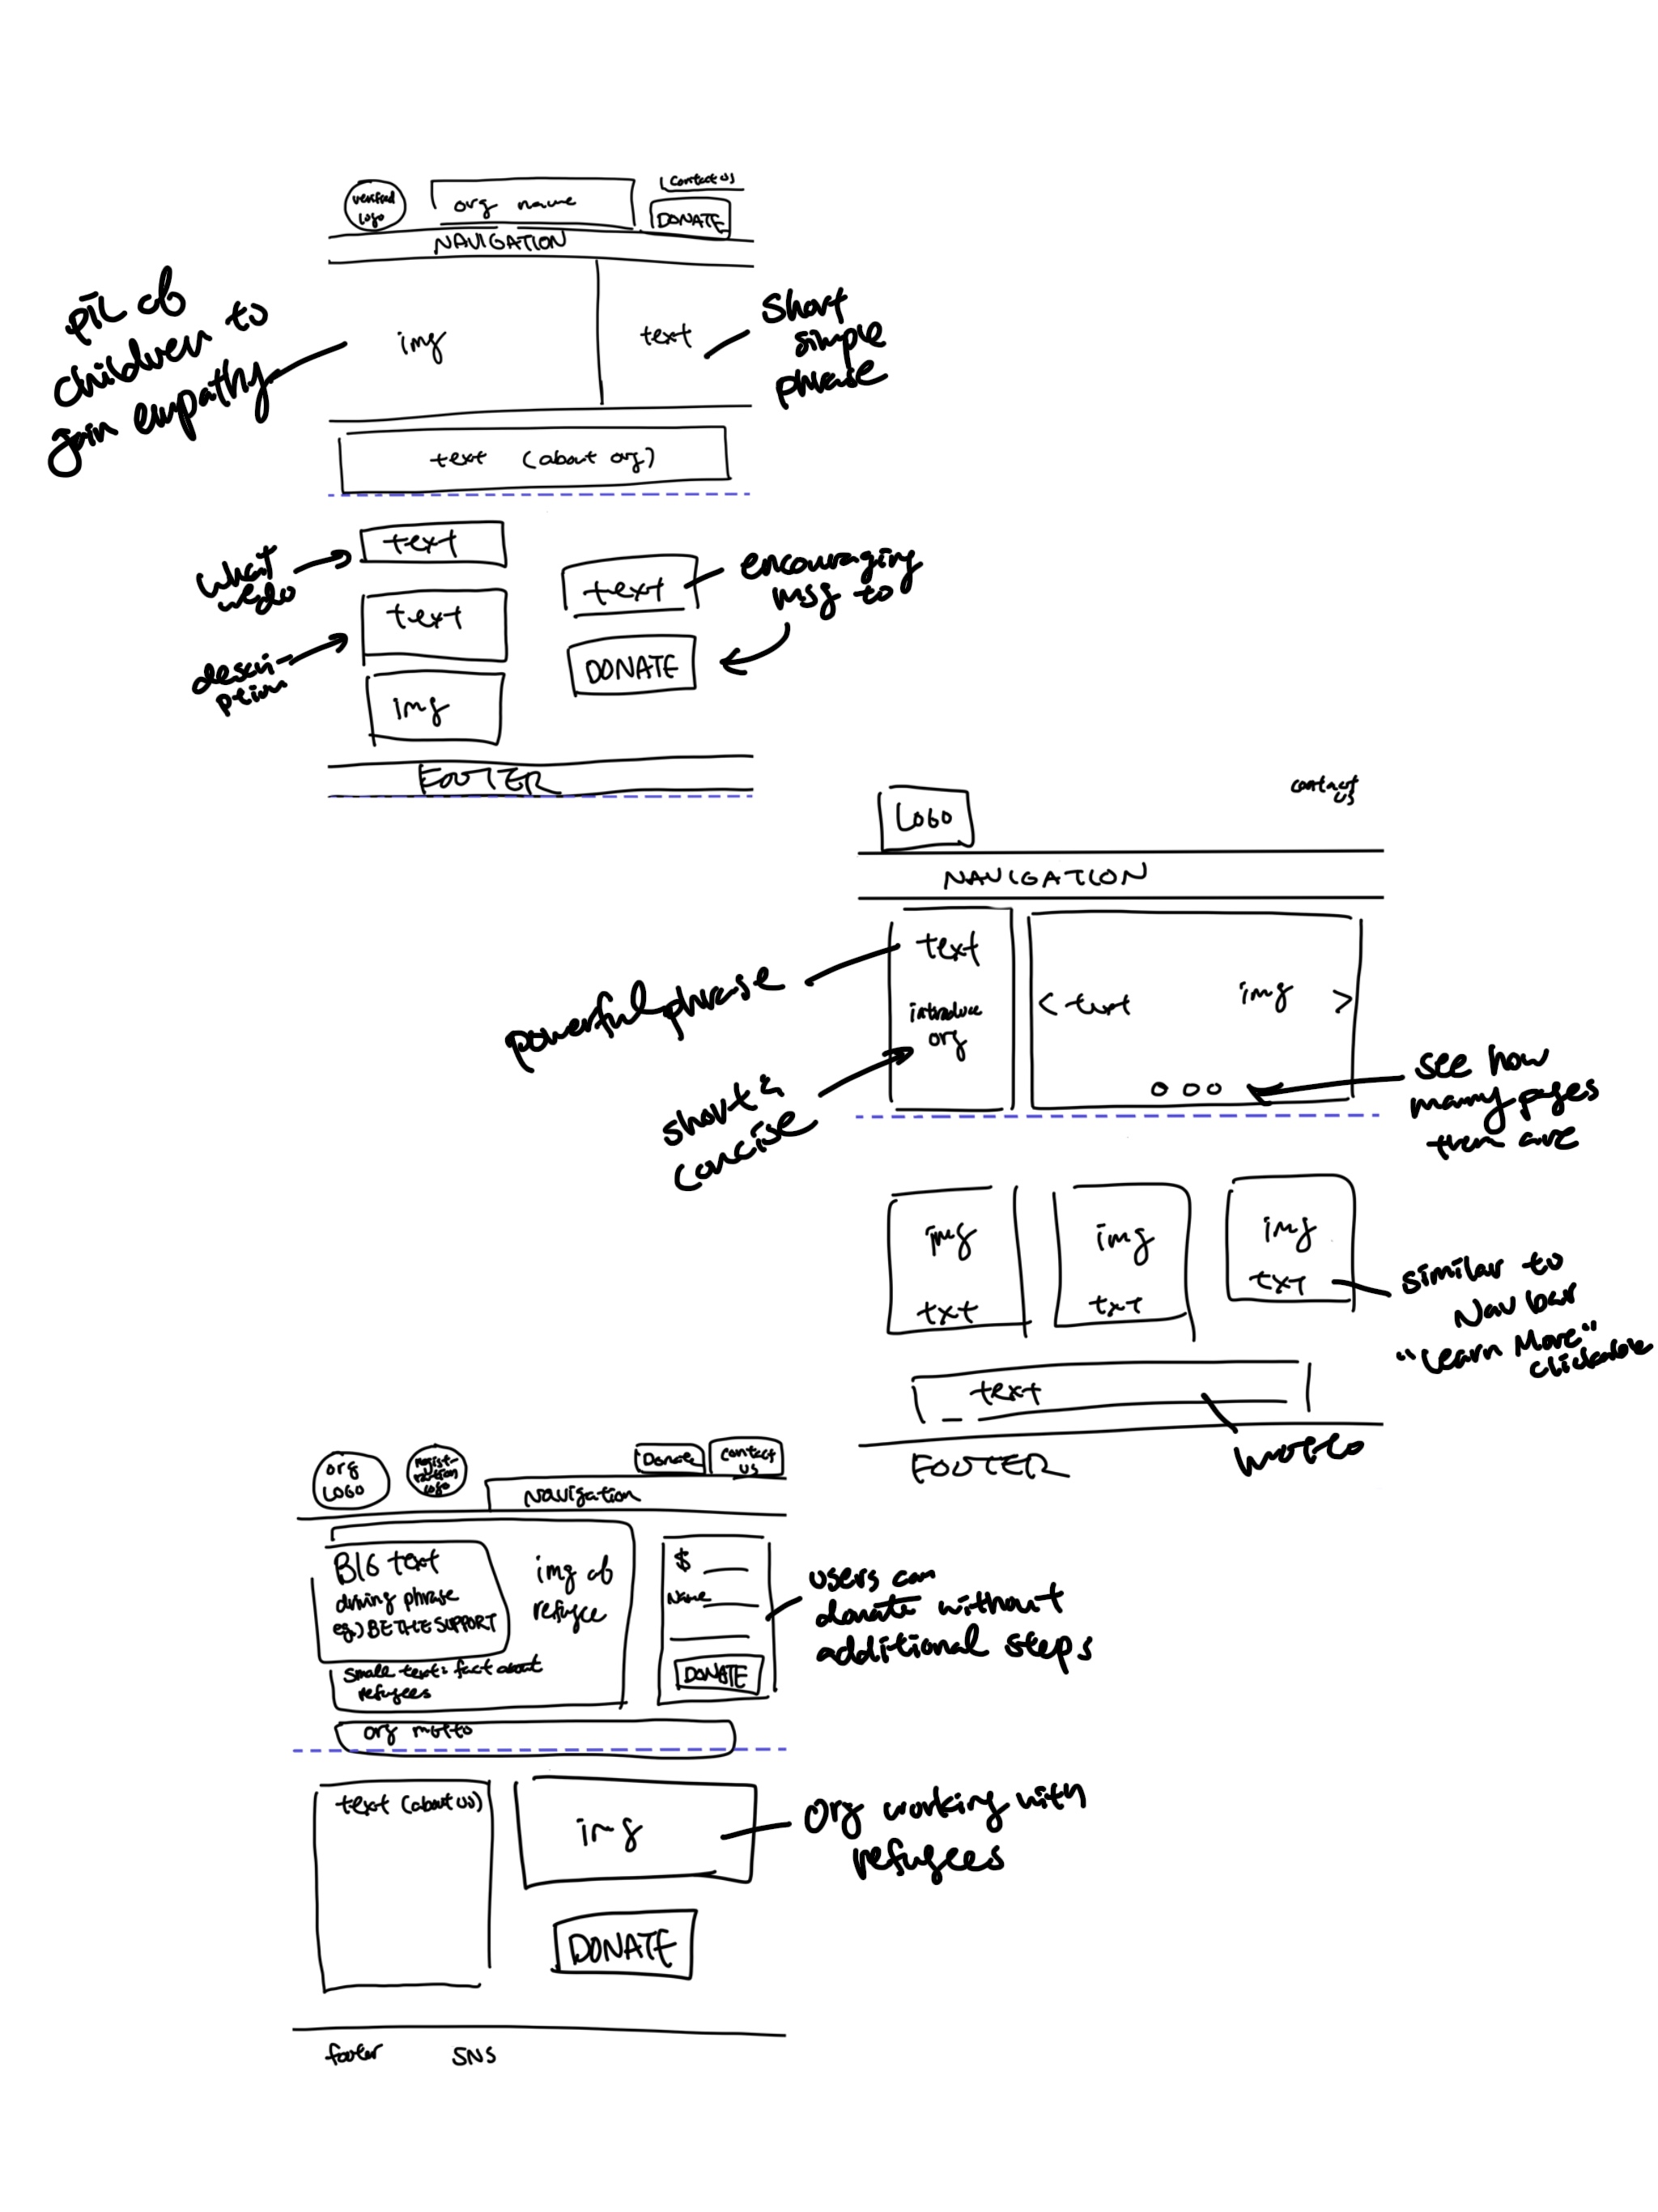 verified
logo
org name
contact us
DONATE
NAVIGATION
pic of
children to
gain empathy
img
text
short
simple
phrase
text (about org)
what
we do
text
descri-
ption
text
img
text
encouraging
msg to
DONATE
FOOTER
LOGO
contact
us
NAVIGATION
powerful phrase
text
introduce
org
short &
concise
< text
img >
see how
many pages
there are
img
txt
img
txt
img
txt
similar to
Nav bar
"Learn More"
clickable
text
motto
FOOTER
org
LOGO
regist-
ration
logo
Donate
contact
us
Navigation
BIG text
driving phrase
eg.) BE THE SUPPORT
img of
refugee
small text: fact about
refugees
$
Name
DONATE
users can
donate without
additional steps
org motto
text (about us)
img
org working with
refugees
DONATE
footer
SNS